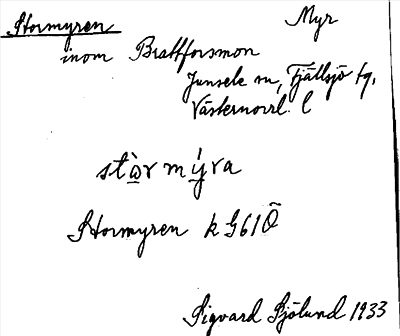 Stormyren Myr
inom Brattforsmon
Junsele sn, Fjällsjö tg,
Västernorrl. l
stὼr mý̱ra
Stormyren k G61Ö
Sigvard Sjölund 1933